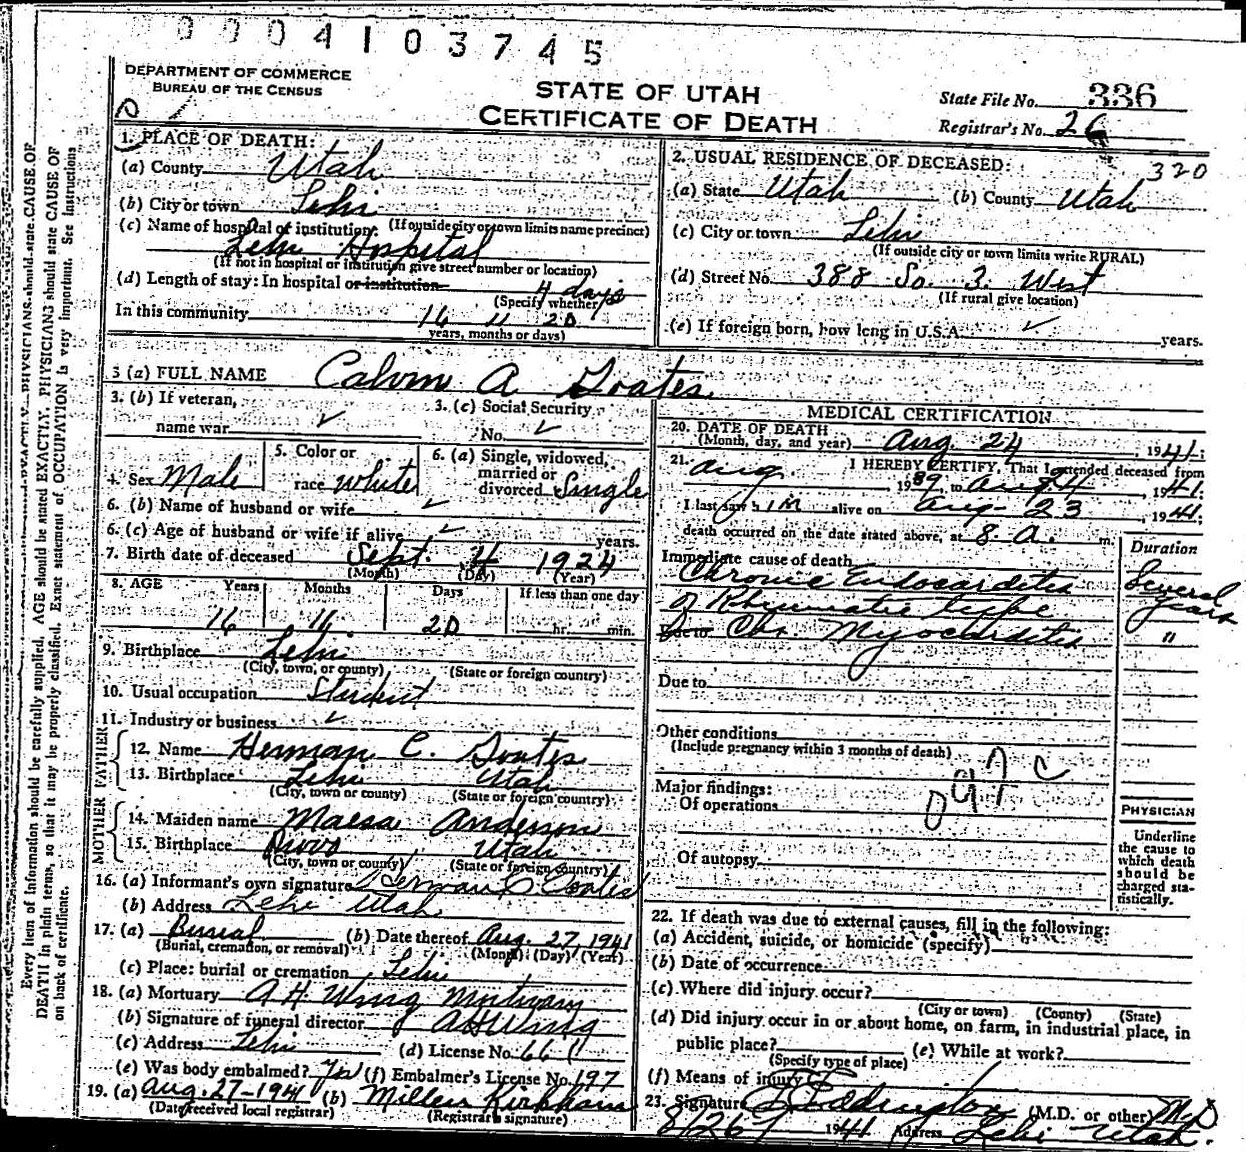 0004103745
DEPARTMENT OF COMMERCE
BUREAU OF THE CENSUS
STATE OF UTAH
CERTIFICATE OF DEATH
State File No. 336
Registrar's No. 26
1. PLACE OF DEATH:
(a) County Utah
(b) City or town Lehi
(If outside city or town limits name precinct)
(c) Name of hospital or institution:
Lehi Hospital
(If not in hospital or institution give street number or location)
(d) Length of stay: In hospital or institution 4 days
(Specify whether
In this community 16 11 20
years, months or days)
2. USUAL RESIDENCE OF DECEASED: 320
(a) State Utah (b) County Utah
(c) City or town Lehi
(If outside city or town limits write RURAL)
(d) Street No. 388 So. 3 West
(If rural give location)
(e) If foreign born, how long in U.S.A. ✓ years.
3 (a) FULL NAME Calvin A Goates
3. (b) If veteran, name war ✓
3. (c) Social Security No. ✓
4. Sex Male
5. Color or race white
6. (a) Single, widowed, married or divorced Single
6. (b) Name of husband or wife ✓
6. (c) Age of husband or wife if alive ✓ years.
7. Birth date of deceased Sept. 4 1924
(Month) (Day) (Year)
8. AGE Years Months Days If less than one day
16 11 20 hr. min.
9. Birthplace Lehi
(City, town, or county) (State or foreign country)
10. Usual occupation Student
11. Industry or business ✓
FATHER
12. Name Herman C. Goates
13. Birthplace Lehi Utah
(City, town or county) (State or foreign country)
MOTHER
14. Maiden name Maesa Anderson
15. Birthplace Provo Utah
(City, town or county) (State or foreign country)
16. (a) Informant's own signature Herman C Goates
(b) Address Lehi Utah
17. (a) Burial (b) Date thereof Aug. 27, 1941
(Burial, cremation, or removal) (Month) (Day) (Year)
(c) Place: burial or cremation Lehi
18. (a) Mortuary A H Wing Mortuary
(b) Signature of funeral director A H Wing
(c) Address Lehi (d) License No. 66
(e) Was body embalmed? Yes (f) Embalmer's License No. 197
19. (a) Aug. 27-1941 (b) Millen Kirkham
(Date received local registrar) (Registrar's signature)
MEDICAL CERTIFICATION
20. DATE OF DEATH
(Month, day, and year) Aug. 24, 1941:
21. I HEREBY CERTIFY, That I attended deceased from
Aug. 1939, to Aug 24, 1941:
I last saw him alive on Aug- 23, 1941:
death occurred on the date stated above, at 8. a. m.
Duration
Immediate cause of death
Chronic Endocarditis Several
of Rheumatic type years
Due to Chr. Myocarditis "
Due to
Other conditions
(Include pregnancy within 3 months of death)
Major findings:
Of operations
Of autopsy
PHYSICIAN
Underline
the cause to
which death
should be
charged sta-
tistically.
22. If death was due to external causes, fill in the following:
(a) Accident, suicide, or homicide (specify)
(b) Date of occurrence
(c) Where did injury occur?
(City or town) (County) (State)
(d) Did injury occur in or about home, on farm, in industrial place, in
public place? (e) While at work?
(Specify type of place)
(f) Means of injury
23. Signature Eddington (M.D. or other) M.D
8/26/ 1941 Address Lehi Utah.
Every item of information should be carefully supplied. AGE should be stated EXACTLY. PHYSICIANS should state CAUSE OF
DEATH in plain terms, so that it may be properly classified. Exact statement of OCCUPATION is very important. See Instructions
on back of certificate.